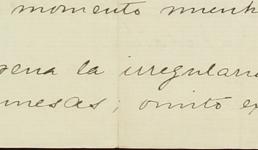 momento mient
pena la irregular
mesas; omito ex